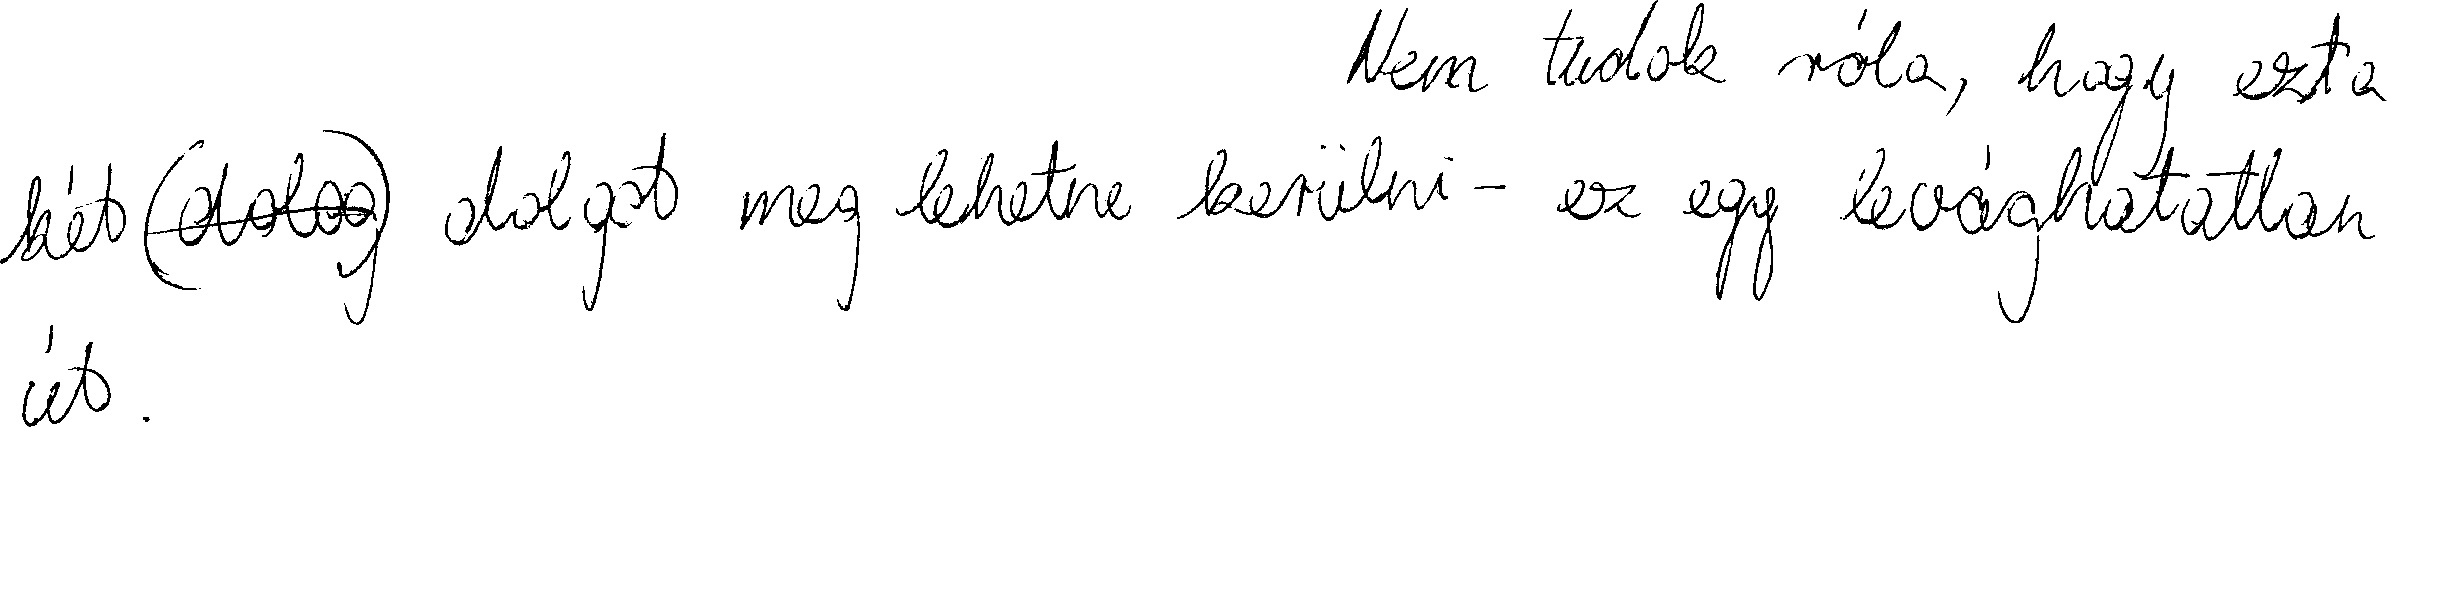 Nem tudok róla, hogy ezt a
két (dolog) dolgot meg lehetne kerülni – ez egy levághatatlan
út.